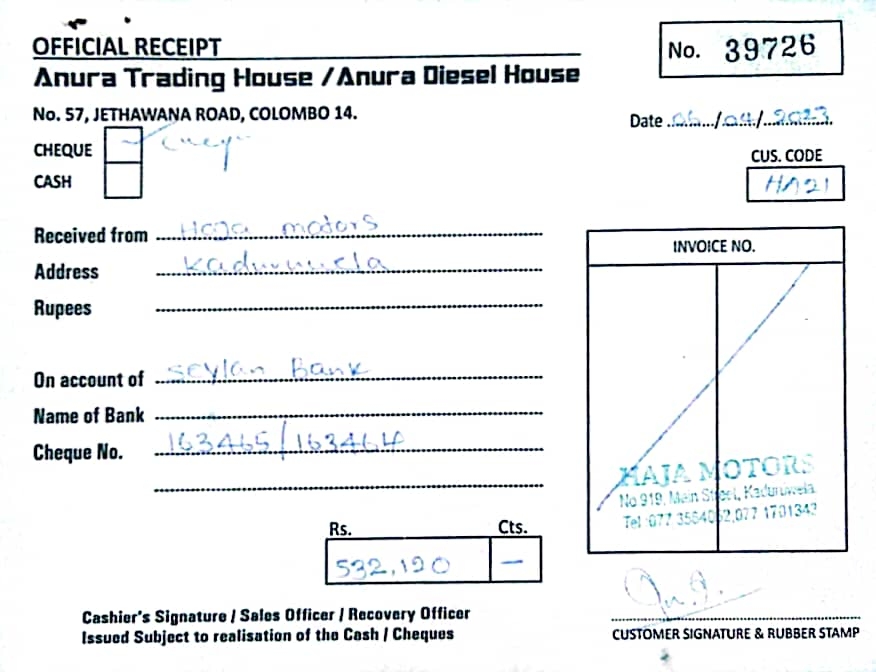 OFFICIAL RECEIPT
No. 39726
Anura Trading House / Anura Diesel House
No. 57, JETHAWANA ROAD, COLOMBO 14.
Date 06/04/2023
CHEQUE Cheque
CASH
CUS. CODE
HA21
Received from Haja motors
Address Kaduruwela
Rupees
On account of Seylan Bank
Name of Bank
Cheque No. 163465/163464
INVOICE NO.
HAJA MOTORS
No 919, Main Street, Kaduruwela.
Tel: 077 1701343
Rs. Cts.
532,190 —
Cashier's Signature / Sales Officer / Recovery Officer
Issued Subject to realisation of the Cash / Cheques
CUSTOMER SIGNATURE & RUBBER STAMP